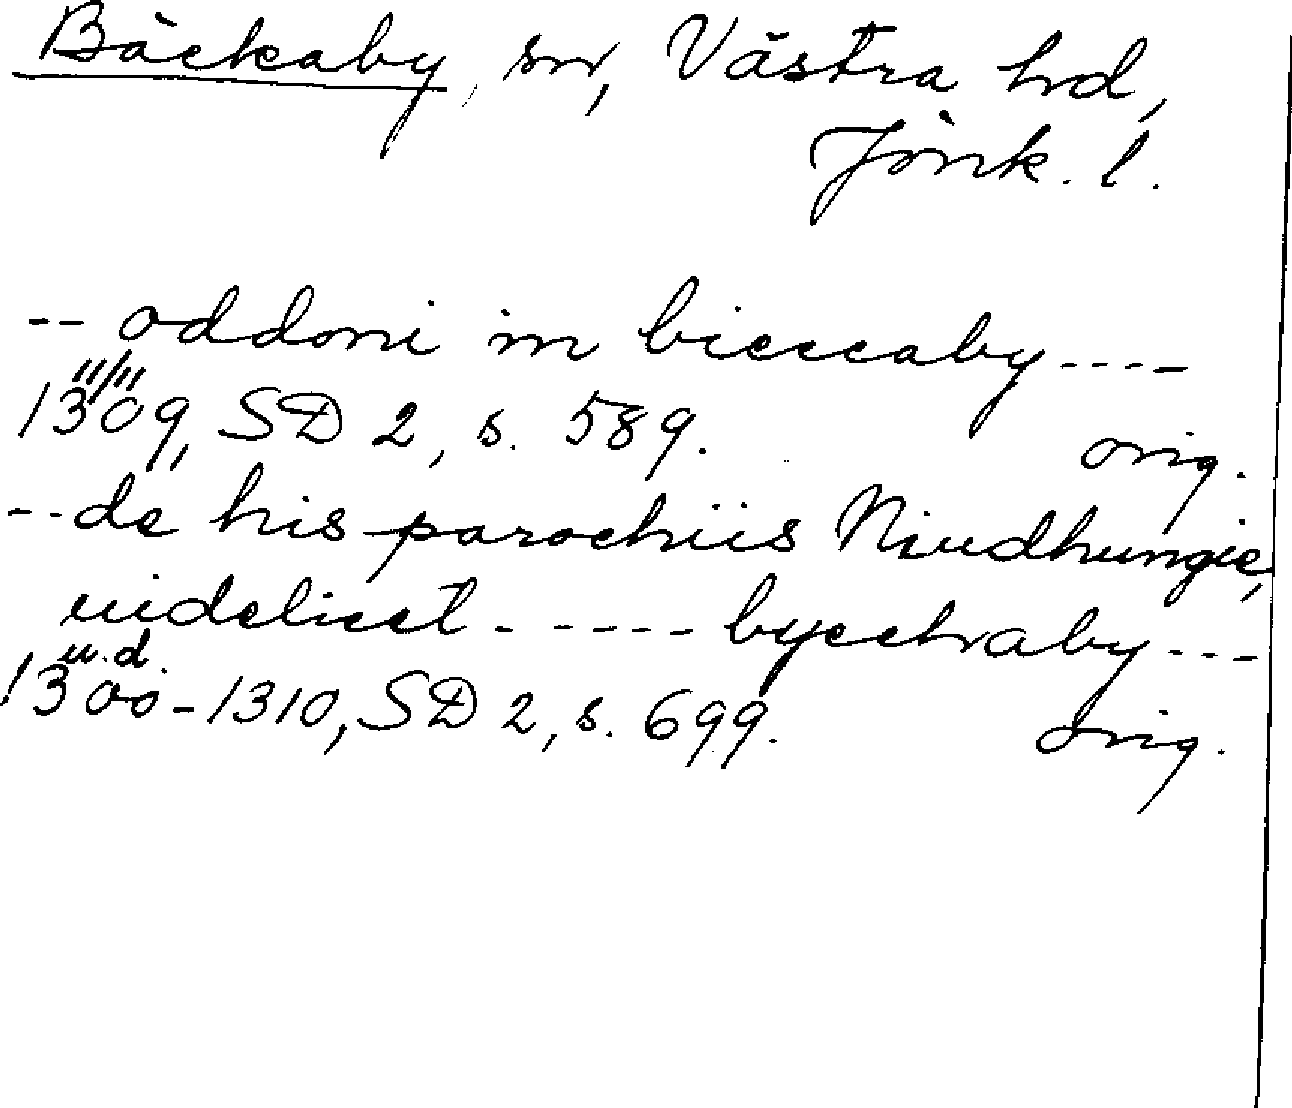 Bäckaby, sn, Västra hd,
Jönk. l.
-- oddoni in bieccaby ----
13 11/11 09, SD 2, s. 589. orig.
-- de his parochiis Niudhungie,
uidelicet ----- byechraby ---
13 u.d. 00-1310, SD 2, s. 699. orig.